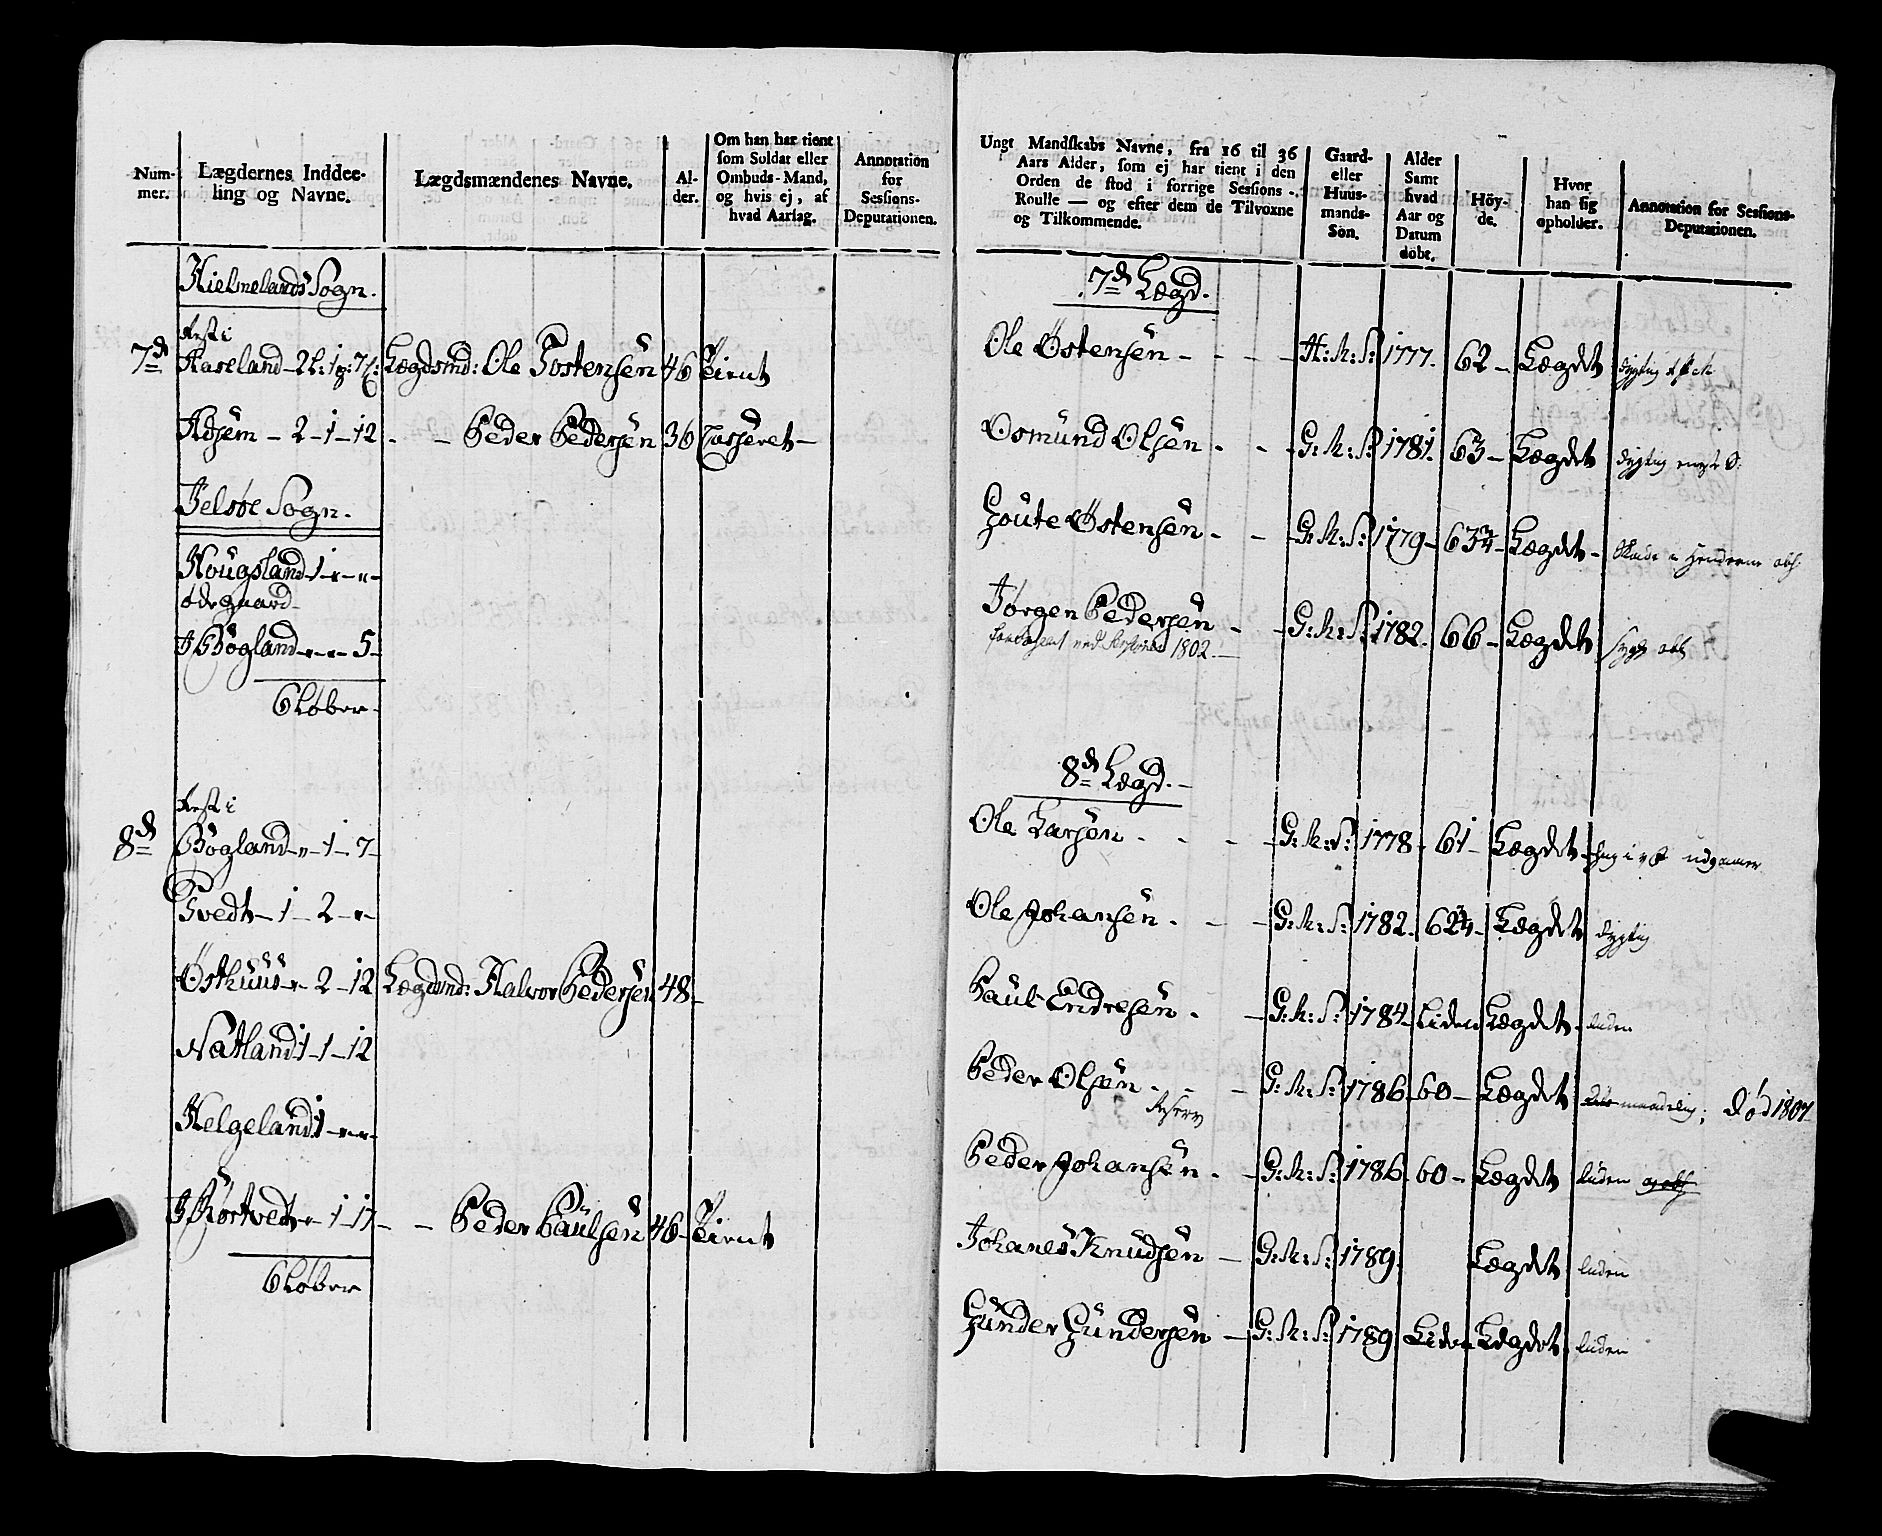 Num-
mer.
Lægdernes Inddee-
ling og Navne.
Lægdsmændenes Navne.
Al-
der.
Om han har tient
som Soldat eller
Ombuds-Mand,
og hvis ej, af
hvad Aarsag.
Annotation
for
Sessions-
Deputationen.
Hielmelands Sogn.
Rest i
7de Haseland - 2 L: 1 pp: 7 Lægdsmd: Ole Tostensen 46 Tient
Adsem - 2 - 1 - 12 - - Peder Pedersen 36 Casseret -
Jelsøe Sogn.
Hougsland 1 - " - " -
Ødegaard -
I Bogland " - " - 5 -
6 Løber -
Rest i
8de Bogland - " - 1 - 7 -
Tvedt - 1 - 2 - " -
Østhuus - " - 2 - 12 Lægdsmd: Halvor Pedersen 48 -
Natland 1 - 1 - 12
Helgeland 1 - " - " -
I Rørtvedt - " - 1 - 17 - - Peder Paulsen 46 - Tient
6 Løber
Ungt Mandskabs Navne, fra 16 til 36
Aars Alder, som ej har tient i den
Orden de stod i forrige Sessions-
Roulle — og efter dem de Tilvoxne
og Tilkommende.
Gaard-
eller
Huus-
mands-
Søn.
Alder
Samt
hvad
Aar og
Datum
döbt.
Höy-
de.
Hvor
han sig
opholder.
Annotation for Sessions-
Deputationen.
7de Lægd.
Ole Østensen - - - - H: M: S: 1777. 62 - Lægdet dygtig
Osmund Olsen - - - G: M: S: 1781. 63 - Lægdet dygtig
Goute Østensen - - - G: M: S: 1779 - 63 3/4 - Lægdet - Skade Henderne
Jørgen Pedersen - - G: M: S: 1782. 66 - Lægdet
ved Sessionen 1802. -
8de Lægd. -
Ole Larsen - - - - G: M: S: 1778 - 61 - Lægdet
Ole Johansen - - - G: M: S: 1782. 62 3/4 - Lægdet dygtig
Paul Endresen - - G: M: S: 1784. Liden Lægdet - liden
Peder Olsen - - - G: M: S: 1786 - 60 - Lægdet maadelig; Død 1807
Reserv
Peder Johansen - - G: M: S: 1786. 60 - Lægdet liden
Johanes Knudsen - G: M: S: 1789. Lægdet liden
Gunder Gundersen - G: M: S: 1789 Liden Lægdet liden